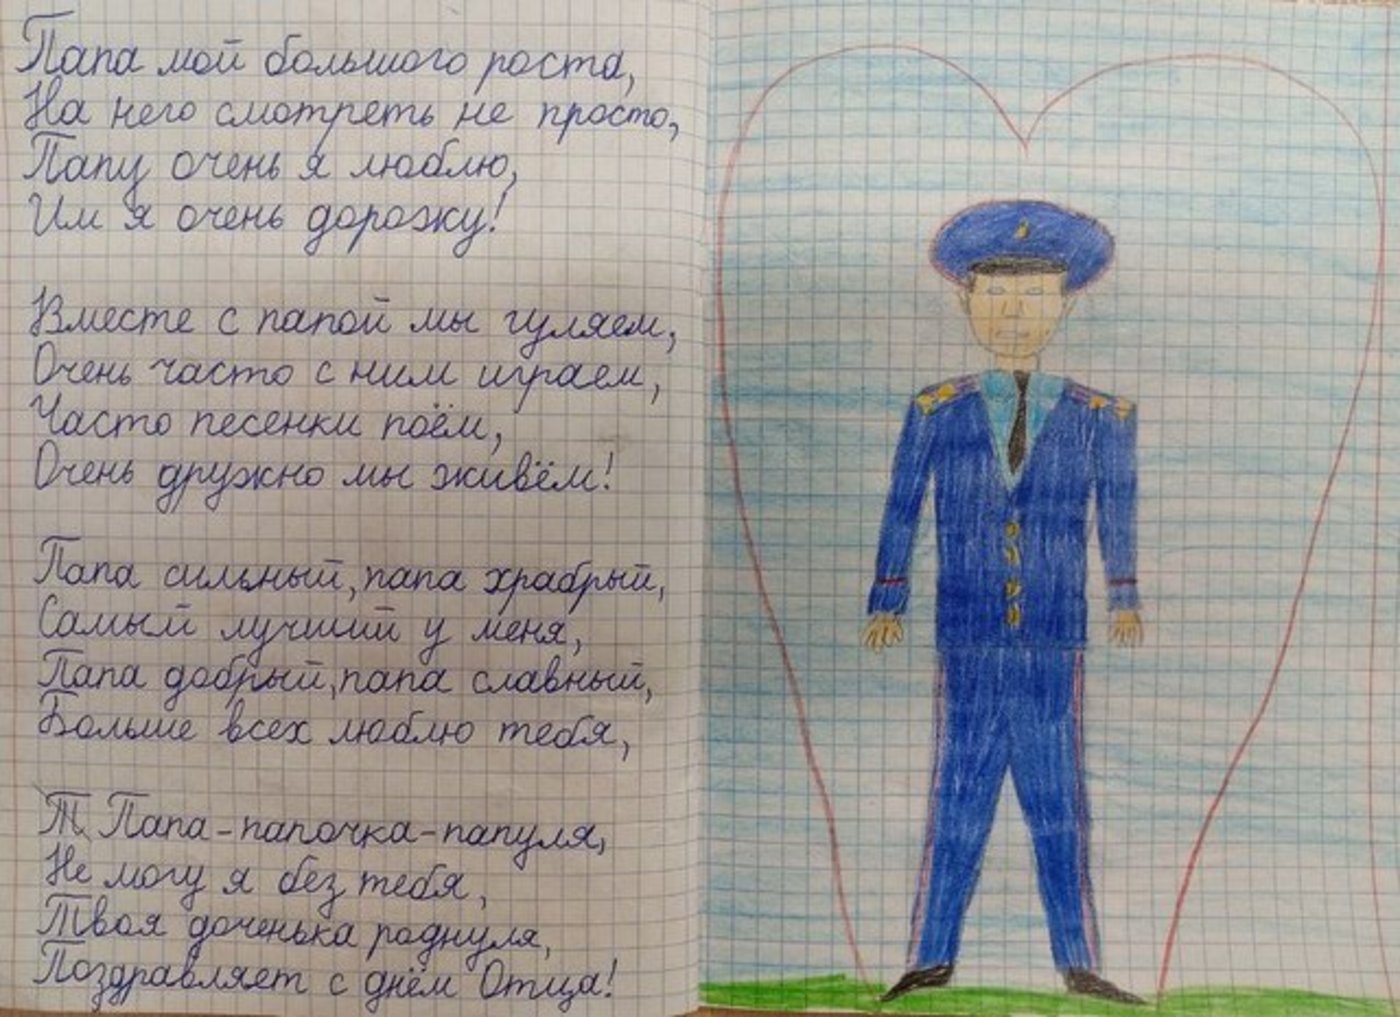 Папа мой большого роста,
На него смотреть не просто,
Папу очень я люблю,
Им я очень дорожу!
Вместе с папой мы гуляем,
Очень часто с ним играем,
Часто песенки поём,
Очень дружно мы живём!
Папа сильный, папа храбрый,
Самый лучший у меня,
Папа добрый, папа славный,
Больше всех люблю тебя,
Т Папа-папочка-папуля,
Не могу я без тебя,
Твоя доченька роднуля,
Поздравляет с днём Отца!